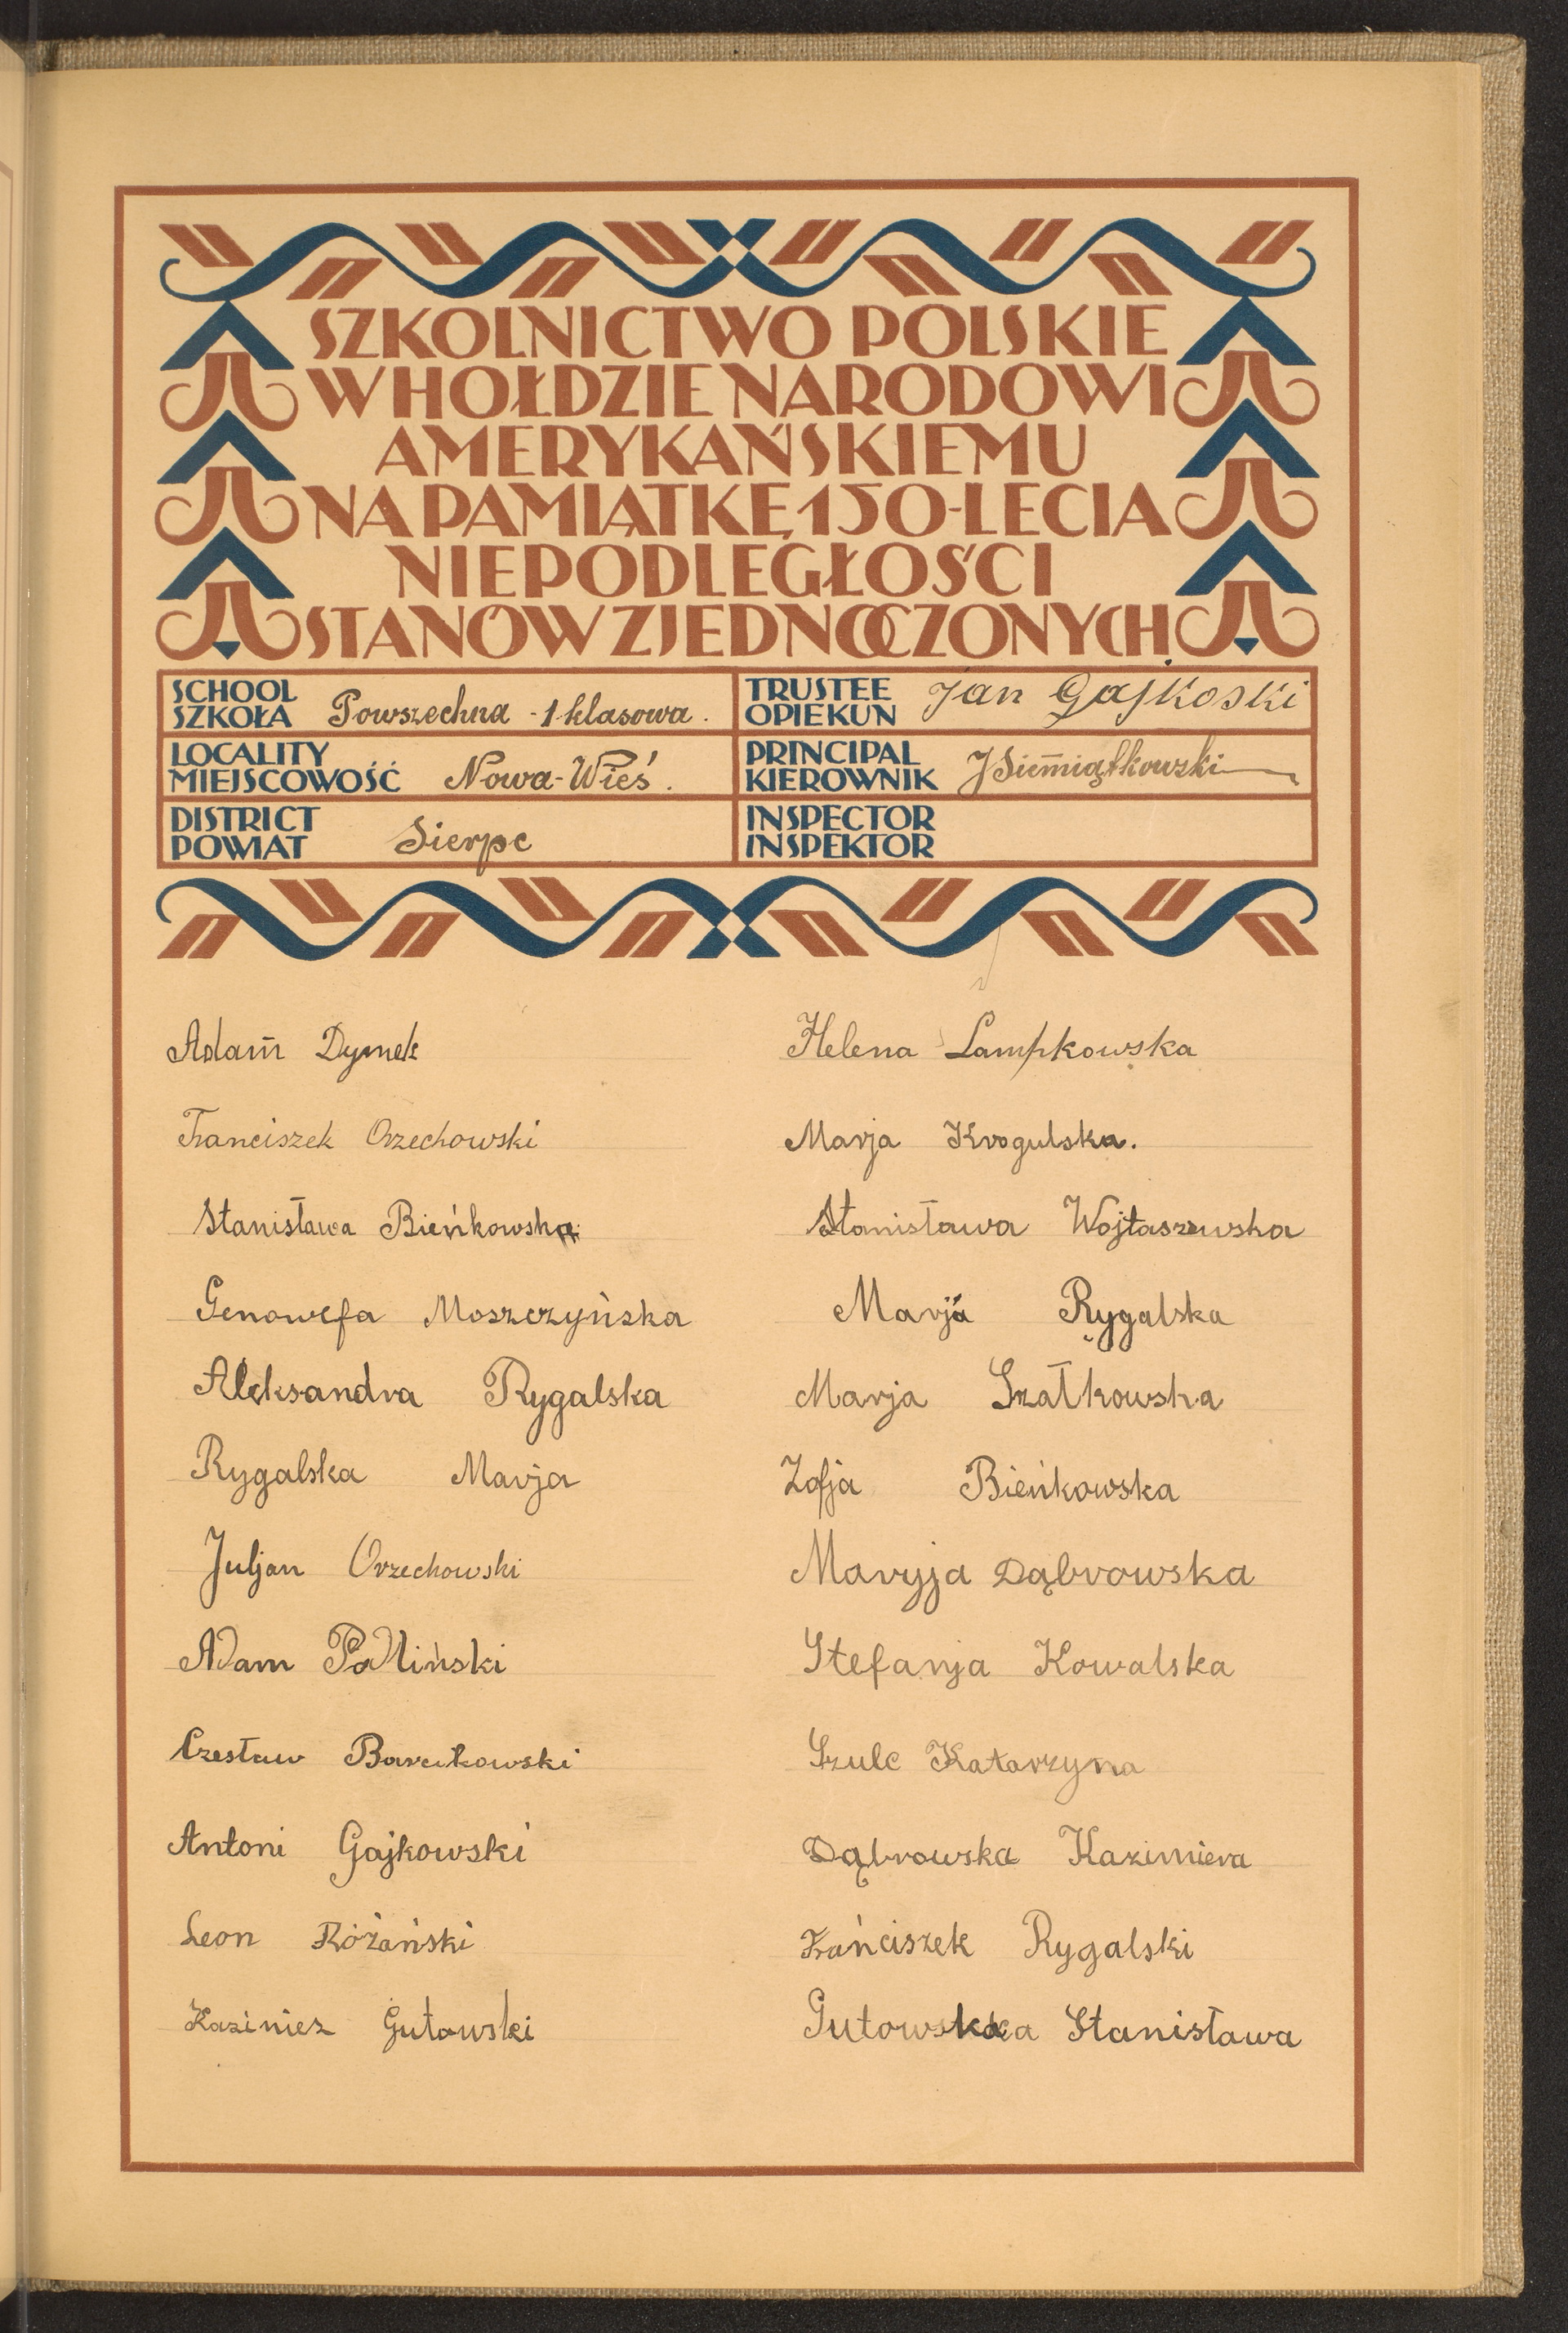 SZKOLNICTWO POLSKIE
W HOŁDZIE NARODOWI
AMERYKAŃSKIEMU
NA PAMIĄTKĘ 150-LECIA
NIEPODLEGŁOŚCI
STANÓW ZJEDNOCZONYCH
SCHOOL
SZKOŁA Powszechna - 1 klasowa.
TRUSTEE
OPIEKUN Jan Gajkoski
LOCALITY
MIEJSCOWOŚĆ Nowa-Wieś.
PRINCIPAL
KIEROWNIK J Siemiątkowski
DISTRICT
POWIAT Sierpc
INSPECTOR
INSPEKTOR
Adam Dymek
Franciszek Orzechowski
Stanisława Bieńkowska
Genowefa Moszczyńska
Aleksandra Rygalska
Rygalska Marja
Juljan Orzechowski
Adam
Czesław
Antoni Gajkowski
Leon Różański
Kaziniez Gutowski
Helena Lampkowska
Marja Krogulska.
Stanisława Wojtaszewska
Marja Rygalska
Marja Szałkowska
Zofja Bieńkowska
Maryja Dąbrowska
Stefanja Kowalska
Szulc Katarzyna
Dąbrowska Kazimiera
Frańciszek Rygalski
Gutowska Stanisława